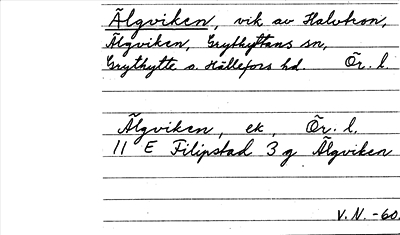 Älgviken, vik av Halvtron,
Älgviken, Grythyttans sn,
Grythytte o. Hällefors hd Ör. l
Älgviken, ek, Ör. l.
11 E Filipstad 3 g Älgviken
V.N. -60